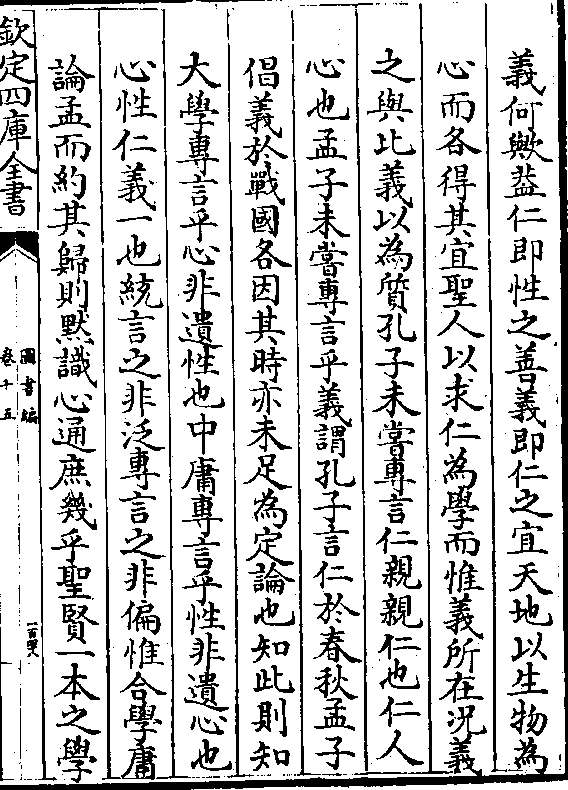 義何歟葢仁即性之善義即仁之宜天地以生物為
心而各得其宜聖人以求仁為學而惟義所在況義
之與比義以為質孔子未嘗專言仁親親仁也仁人
心也孟子未嘗專言乎義謂孔子言仁於春秋孟子
倡義於戰國各因其時亦未足為定論也知此則知
大學專言乎心非遺性也中庸專言乎性非遺心也
心性仁義一也統言之非泛專言之非偏惟合學庸
論孟而約其歸則默識心通庶幾乎聖賢一本之學
欽定四庫全書
圖書編
卷十五
一百四八